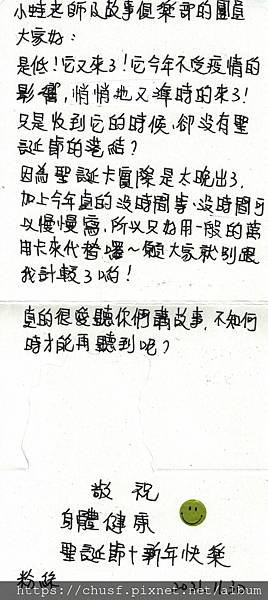 小蛙老師及故事俱樂部的團員
大家好：
是低！它又來了！它今年不受疫情的
影響，悄悄地又準時的來了！
又是收到它的時候，卻沒有聖
誕節的裝結？
因為聖誕卡實際是太晚出了，
加上今年真的沒時間等、沒時間可
以慢慢寫，所以又好用一般的萬
用卡來代替囉～願大家就別跟
我計較了喲！
真的很愛聽你們講故事，不知何
時才能再聽到呢？
敬祝
身體健康
聖誕節＋新年快樂
粉絲
2021.11.30
https://chusf.pixnet.net/album